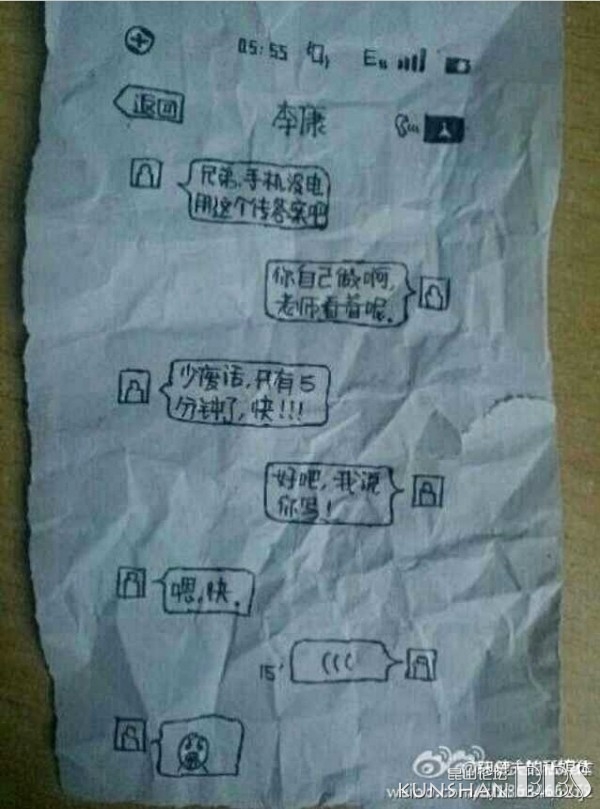 05:55 E
返回
李康
兄弟,手机没电
用这个传答案吧
你自己做啊,
老师看着呢.
少废话,只有5
分钟了,快!!!
好吧,我说
你写!
嗯,快.
15'
昆山论坛
KUNSHAN BBS